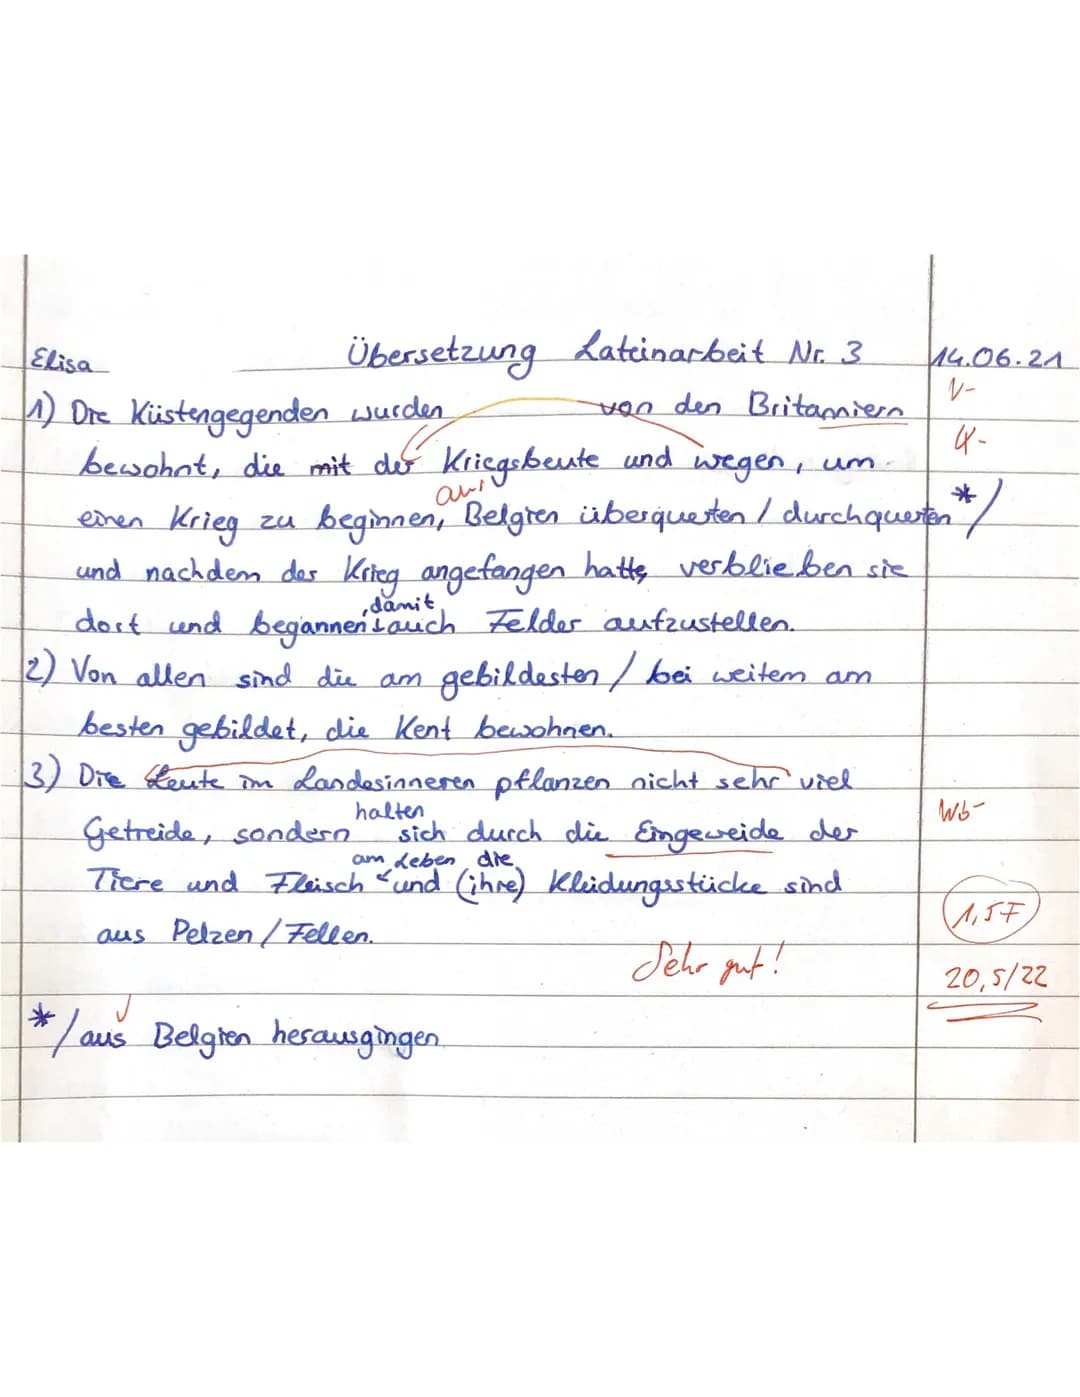 Elisa Übersetzung Lateinarbeit Nr. 3 14.06.21
1) Die Küstengegenden wurden von den Britanniern V-
bewohnt, die mit der Kriegsbeute und wegen, um 4-
aus
einen Krieg zu beginnen, Belgien überquerten / durchquerten */
und nachdem der Krieg angefangen hatte, verblieben sie
, damit
dort und begannen auch Felder aufzustellen.
2) Von allen sind die am gebildesten / bei weitem am
besten gebildet, die Kent bewohnen.
3) Die Leute im Landesinneren pflanzen nicht sehr viel
halten
Getreide, sondern sich durch die Eingeweide der Wb-
am Leben die
Tiere und Fleisch und (ihre) Kleidungsstücke sind
1,5F
aus Pelzen / Fellen.
Sehr gut! 20,5/22
*/ aus Belgien herausgingen